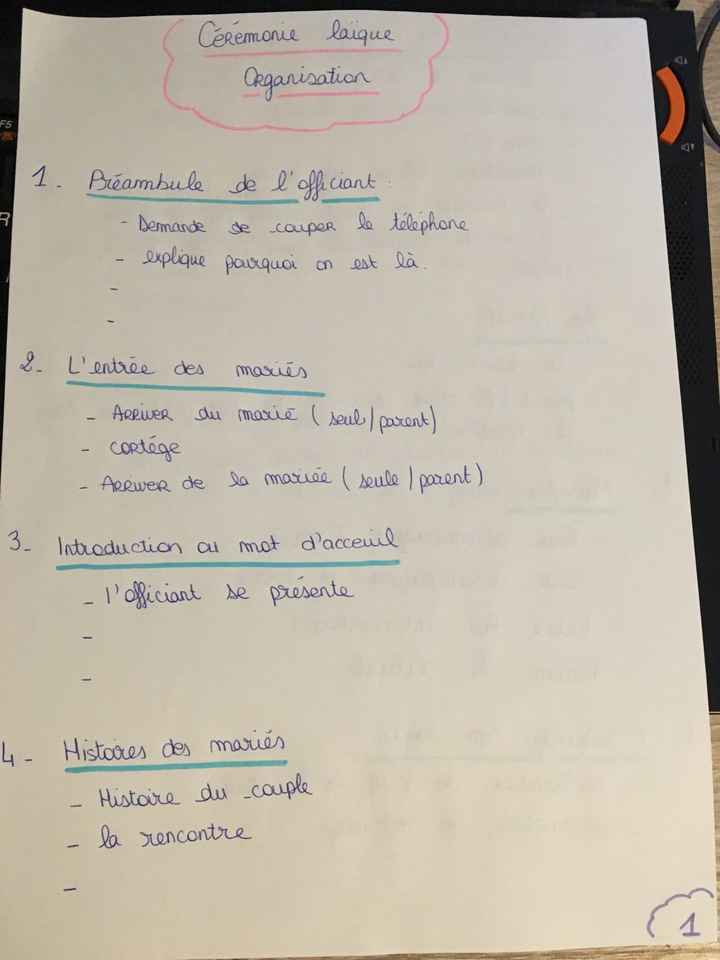 Cérémonie laïque
Organisation
1. Préambule de l'officiant :
- Demande de couper le téléphone
- explique pourquoi on est là.
-
-
2. L'entrée des mariés
- Arriver du marié (seul/parent)
- cortége
- Arriver de la mariée (seule/parent)
3. Introduction ou mot d'acceuil
- l'officiant se présente
-
-
4. Histoires des mariés
- Histoire du couple
- la rencontre
-
1
F5
R